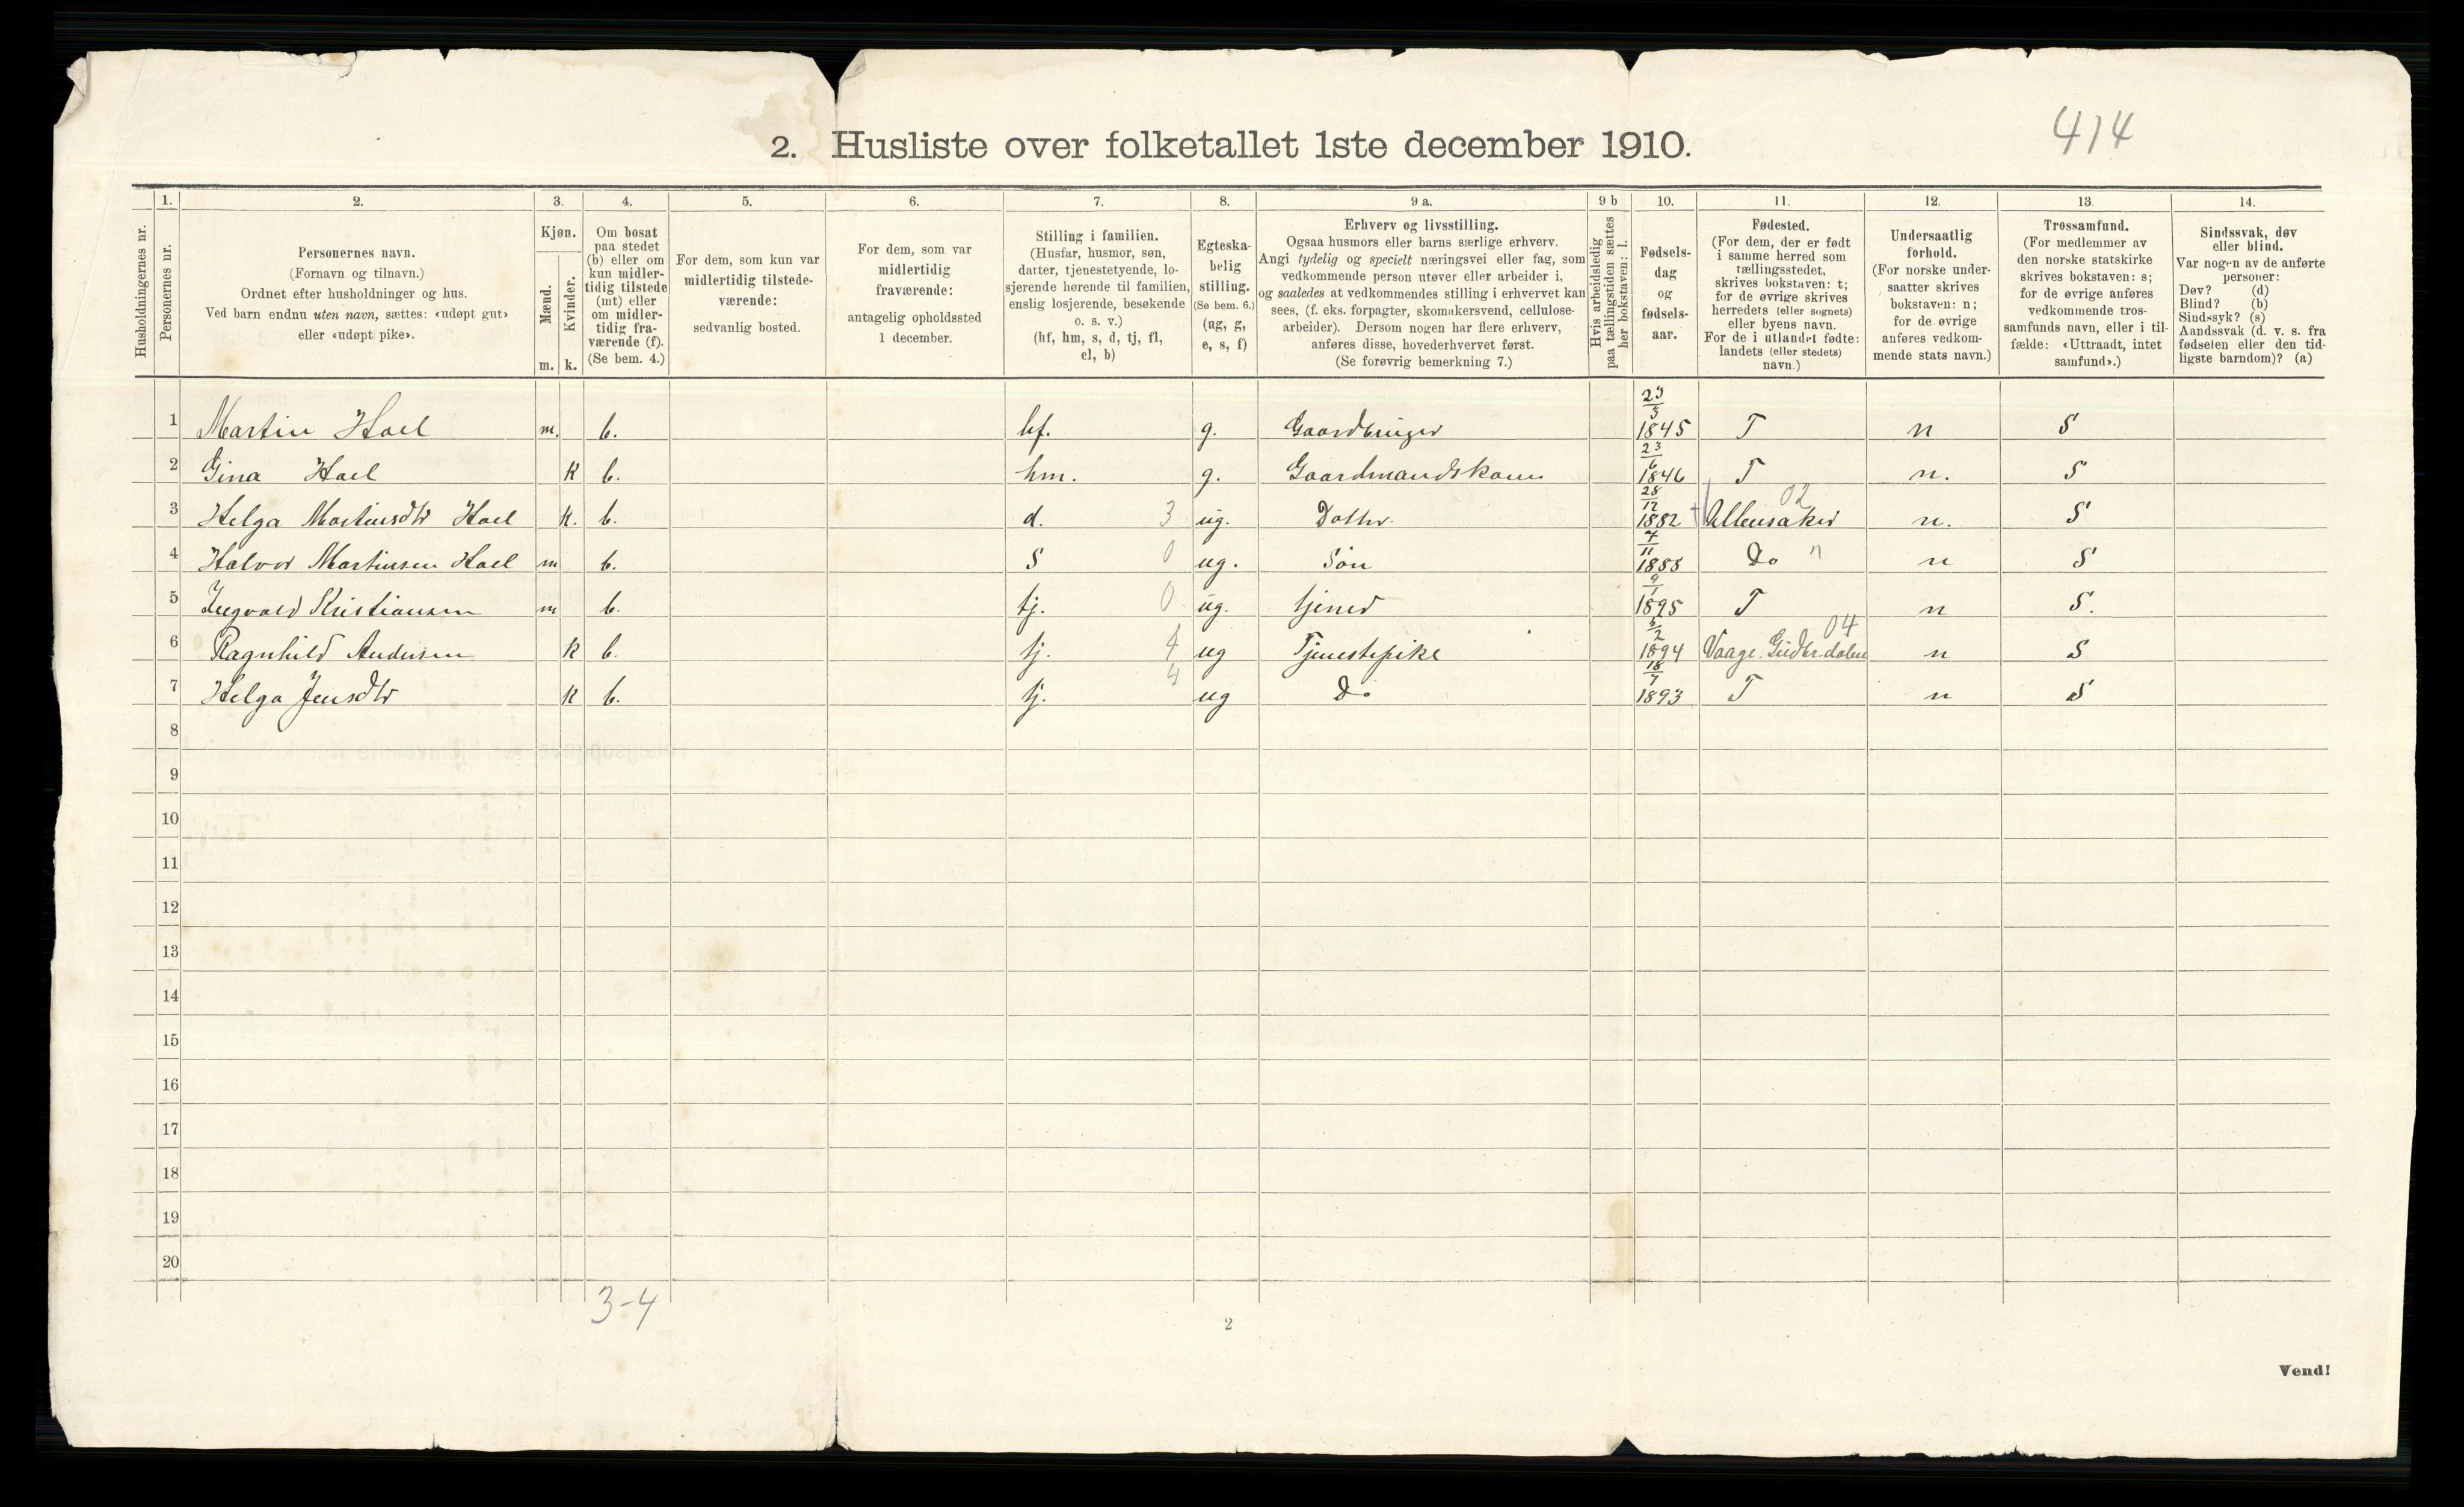 414
2. Husliste over folketallet 1ste december 1910.
Husholdningernes nr.
1.
Personernes nr.
2.
Personernes navn.
(Fornavn og tilnavn.)
Ordnet efter husholdninger og hus.
Ved barn endnu uten navn, sættes: «udøpt gut»
eller «udøpt pike».
3.
Kjøn.
Mænd.
Kvinder.
m. k.
4.
Om bosat
paa stedet
(b) eller om
kun midler-
tidig tilstede
(mt) eller
om midler-
tidig fra-
værende (f).
(Se bem. 4.)
5.
For dem, som kun var
midlertidig tilstede-
værende:
sedvanlig bosted.
6.
For dem, som var
midlertidig
fraværende:
antagelig opholdssted
1 december.
7.
Stilling i familien.
(Husfar, husmor, søn,
datter, tjenestetyende, lo-
sjerende hørende til familien,
enslig losjerende, besøkende
o. s. v.)
(hf, hm, s, d, tj, fl,
el, b)
8.
Egteska-
belig
stilling.
(Se bem. 6.)
(ug, g,
e, s, f)
9 a.
Erhverv og livsstilling.
Ogsaa husmors eller barns særlige erhverv.
Angi tydelig og specielt næringsvei eller fag, som
vedkommende person utøver eller arbeider i,
og saaledes at vedkommendes stilling i erhvervet kan
sees, (f. eks. forpagter, skomakersvend, cellulose-
arbeider). Dersom nogen har flere erhverv,
anføres disse, hovederhvervet først.
(Se forøvrig bemerkning 7.)
9 b
Hvis arbeidsledig
paa tællingstiden sættes
her bokstaven: l.
10.
Fødsels-
dag
og
fødsels-
aar.
11.
Fødested.
(For dem, der er født
i samme herred som
tællingsstedet,
skrives bokstaven: t;
for de øvrige skrives
herredets (eller sognets)
eller byens navn.
For de i utlandet fødte:
landets (eller stedets)
navn.)
12.
Undersaatlig
forhold.
(For norske under-
saatter skrives
bokstaven: n;
for de øvrige
anføres vedkom-
mende stats navn.)
13.
Trossamfund.
(For medlemmer av
den norske statskirke
skrives bokstaven: s;
for de øvrige anføres
vedkommende tros-
samfunds navn, eller i til-
fælde: «Uttraadt, intet
samfund».)
14.
Sindssvak, døv
eller blind.
Var nogen av de anførte
personer:
Døv? (d)
Blind? (b)
Sindssyk? (s)
Aandssvak (d. v. s. fra
fødselen eller den tid-
ligste barndom)? (a)
1 Martin Hoel m. b. hf. g. Gaardbruger 23/3 1845 T n S
2 Gina Hoel k b. hm. g. Gaardmandskone 23/6 1846 T n. S
3 Helga Martinsdtr Hoel k. b. d. 3 ug. Datter 28/12 1882 Ullensaker 02 n. S
4 Halvor Martinsen Hoel m b. S 0 ug. Søn 7/11 1888 Do " n S
5 Ingvald Kristiansen m b. tj. 0 ug. tjener 9/1 1895 T n S.
6 Ragnhild Andersen k b. tj. 4 ug Tjenestepike 5/2 1894 Vaage Gudbr.dalen 04 n S
7 Helga Jensdtr k b. tj. 4 ug Do 18/7 1893 T n S
8
9
10
11
12
13
14
15
16
17
18
19
20
3-4
2
Vend!